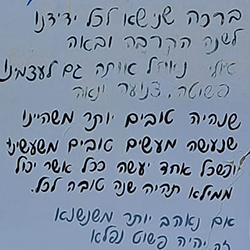 ברכה שנישא לכל ידידנו
לשנה הקרבה ובאה
אולי ניחל אותה גם לעצמינו
פשוטה, צנועה ונאה
שנהיה טובים יותר משהיינו
שנעשה מעשים טובים משעשינו
ושכל אחד יעשה ככל אשר יכול
ממילא תהיה שנה טובה לכל.
אם נאהב יותר משנשנא
זה יהיה פשוט נפלא